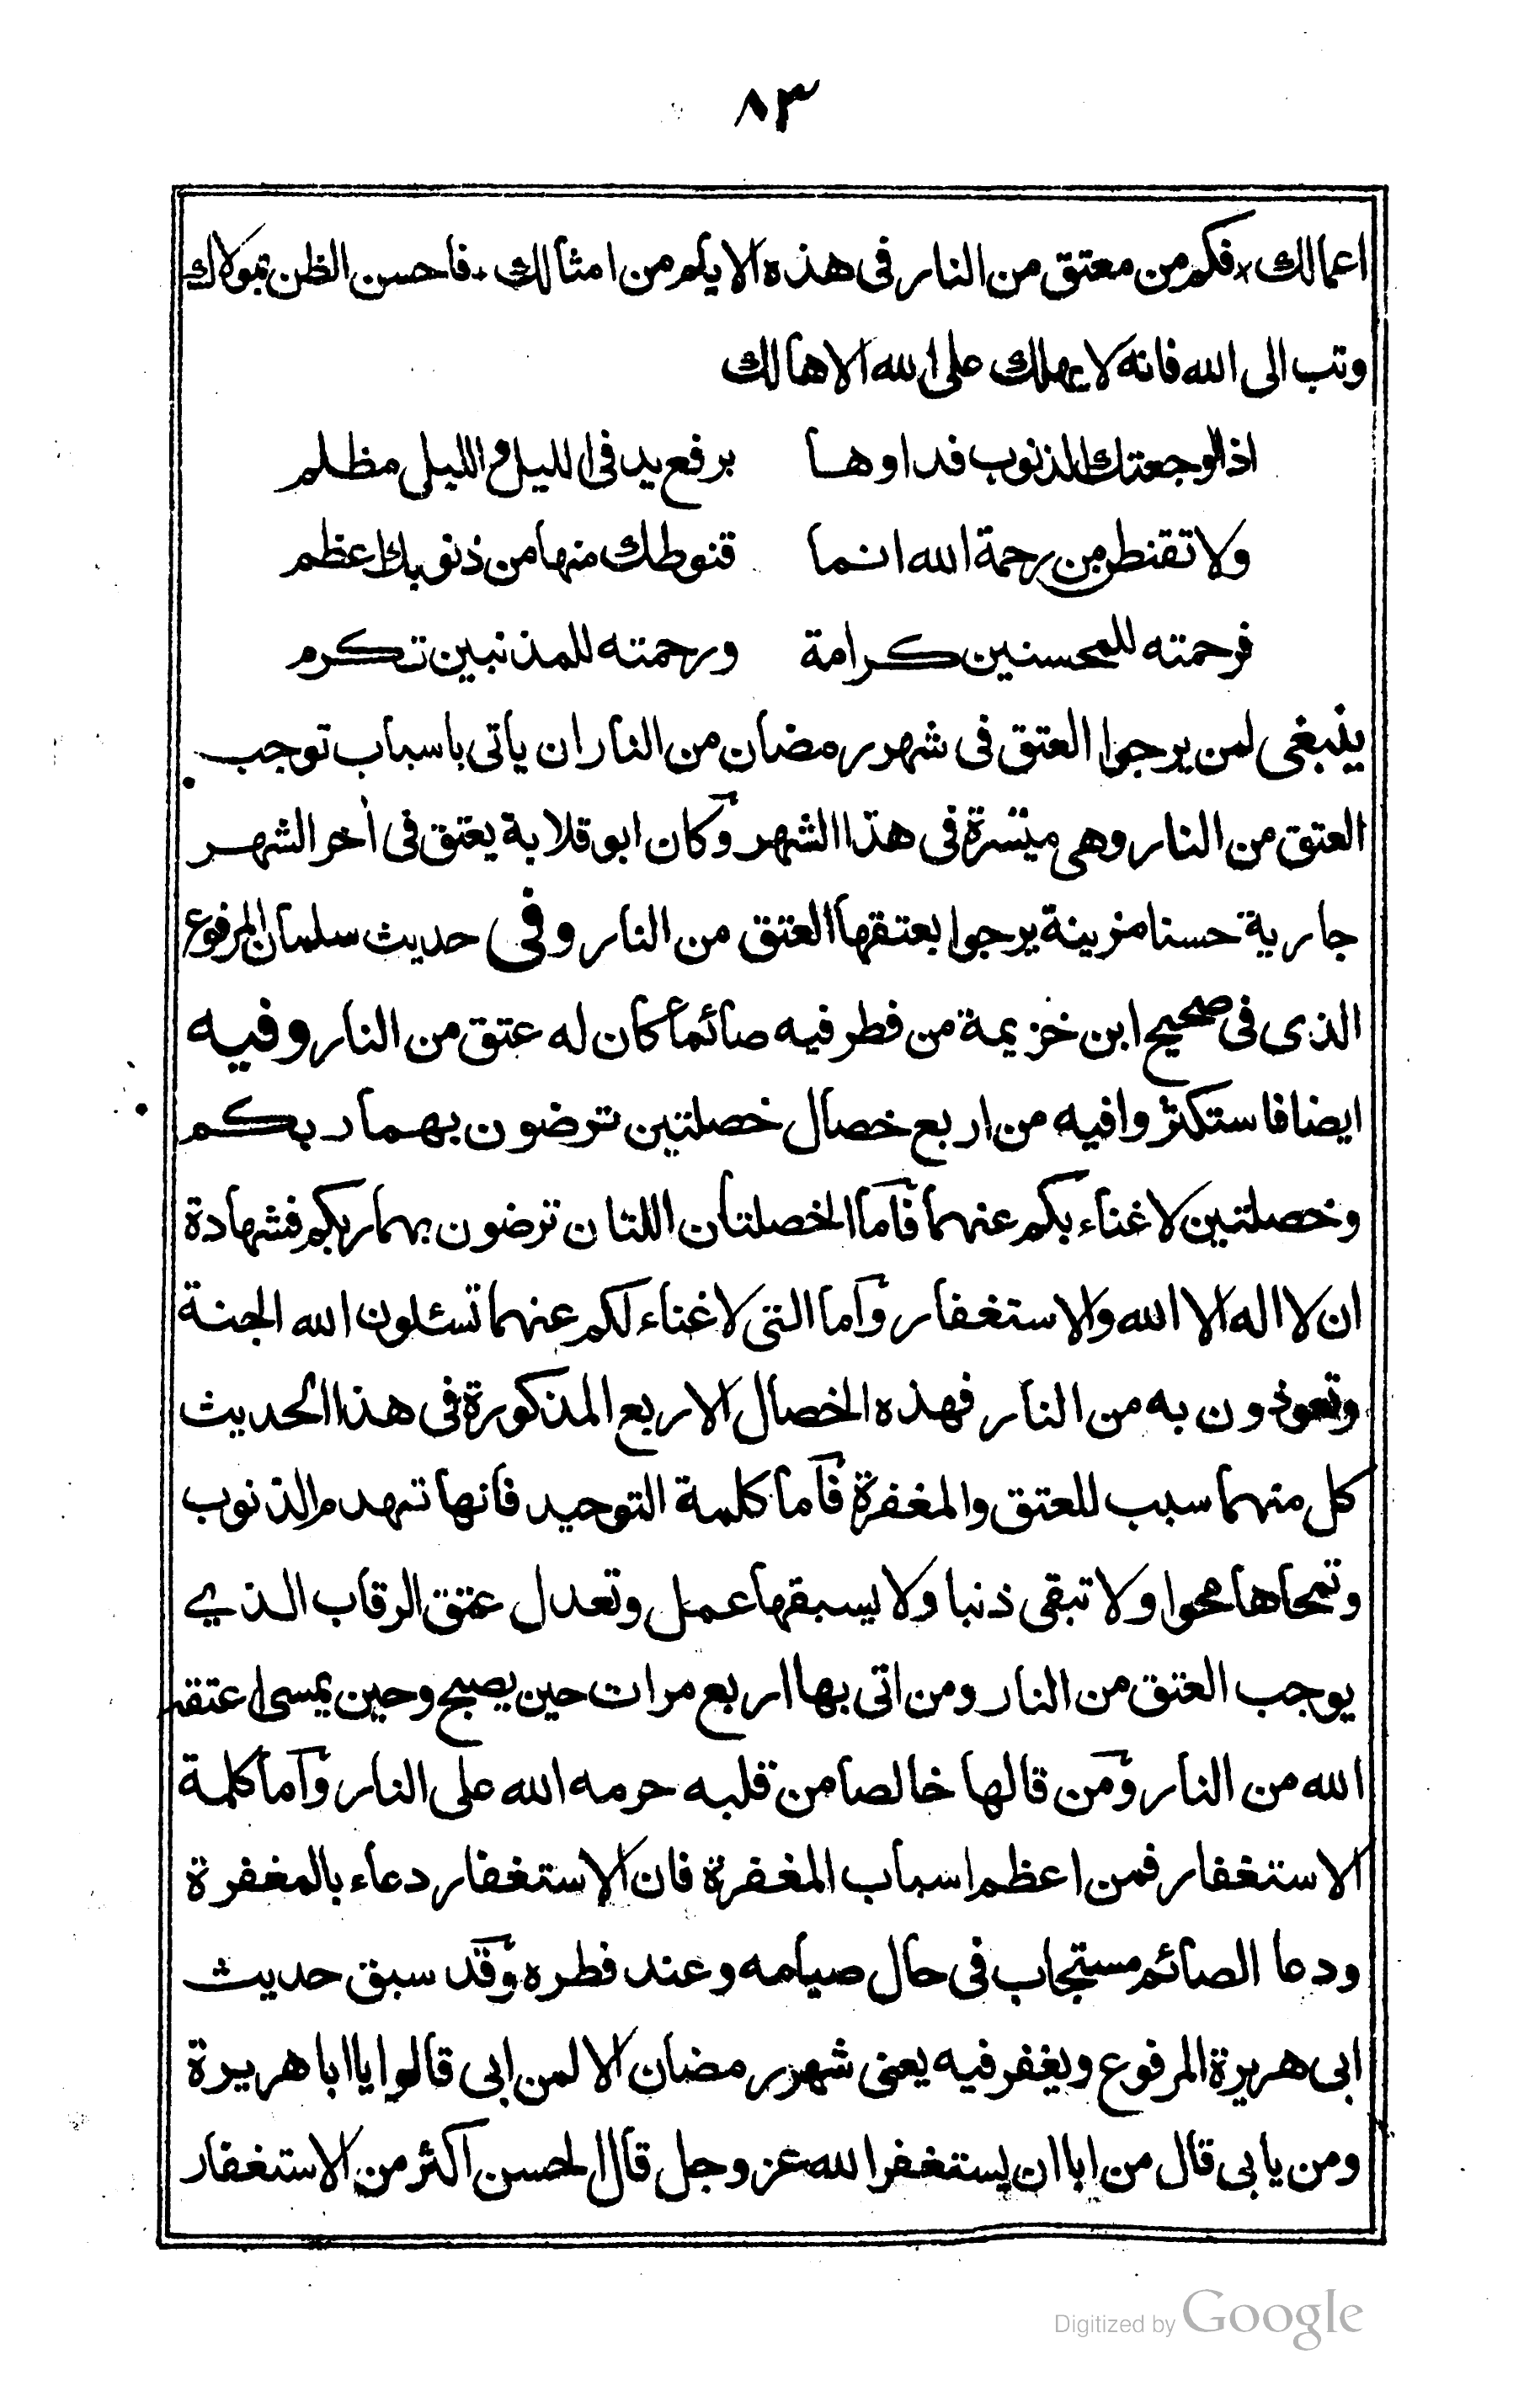 ٨٣
اعمالك فكم من معتق من النار فى هذه الايام من امثالك فاحسن الظن بمولاك
وتب الى الله فانه لا يهلك على الله الا هالك
اذا اوجعتك الذنوب فداوها برفع يد فى الليل والليل مظلم
ولا تقنطن من رحمة الله انما قنوطك منها من ذنوبك اعظم
فرحمته للمحسنين كرامة ورحمته للمذنبين تكرم
ينبغى لمن يرجوا العتق فى شهر رمضان من النار ان ياتى باسباب توجب
العتق من النار وهى ميسرة فى هذا الشهر وكان ابو قلابة يعتق فى أخر الشهر
جارية حسنا مزينة يرجوا بعتقها العتق من النار وفى حديث سلمان المرفوع
الذى فى صحيح ابن خزيمة من فطر فيه صائما كان له عتق من النار وفيه
ايضا فاستكثروا فيه من اربع خصال خصلتين ترضون بهما ربكم
وخصلتين لا غناء بكم عنهما فآما الخصلتان اللتان ترضون بهما ربكم فشهادة
ان لا اله الا الله والاستغفار وآما التى لا غناء لكم عنهما تسئلون الله الجنة
وتعوذون به من النار فهذه الخصال الاربع المذكورة فى هذا الحديث
كل منهما سبب للعتق والمغفرة فآما كلمة التوحيد فانها تهدم الذنوب
وتمحاها محوا ولا تبقى ذنبا ولا يسبقها عمل وتعدل عتق الرقاب الذي
يوجب العتق من النار ومن اتى بها اربع مرات حين يصبح وحين يمسى اعتقه
الله من النار ومن قالها خالصا من قلبه حرمه الله على النار وآما كلمة
الاستغفار فمن اعظم اسباب المغفرة فان الاستغفار دعاء بالمغفرة
ودعا الصائم مستجاب فى حال صيامه وعند فطره وقد سبق حديث
ابى هريرة المرفوع ويغفر فيه يعنى شهر رمضان الا لمن ابى قالوا يا ابا هريرة
ومن يابى قال من ابا ان يستغفر الله عز وجل قال الحسن اكثر من الاستغفار
Digitized by Google